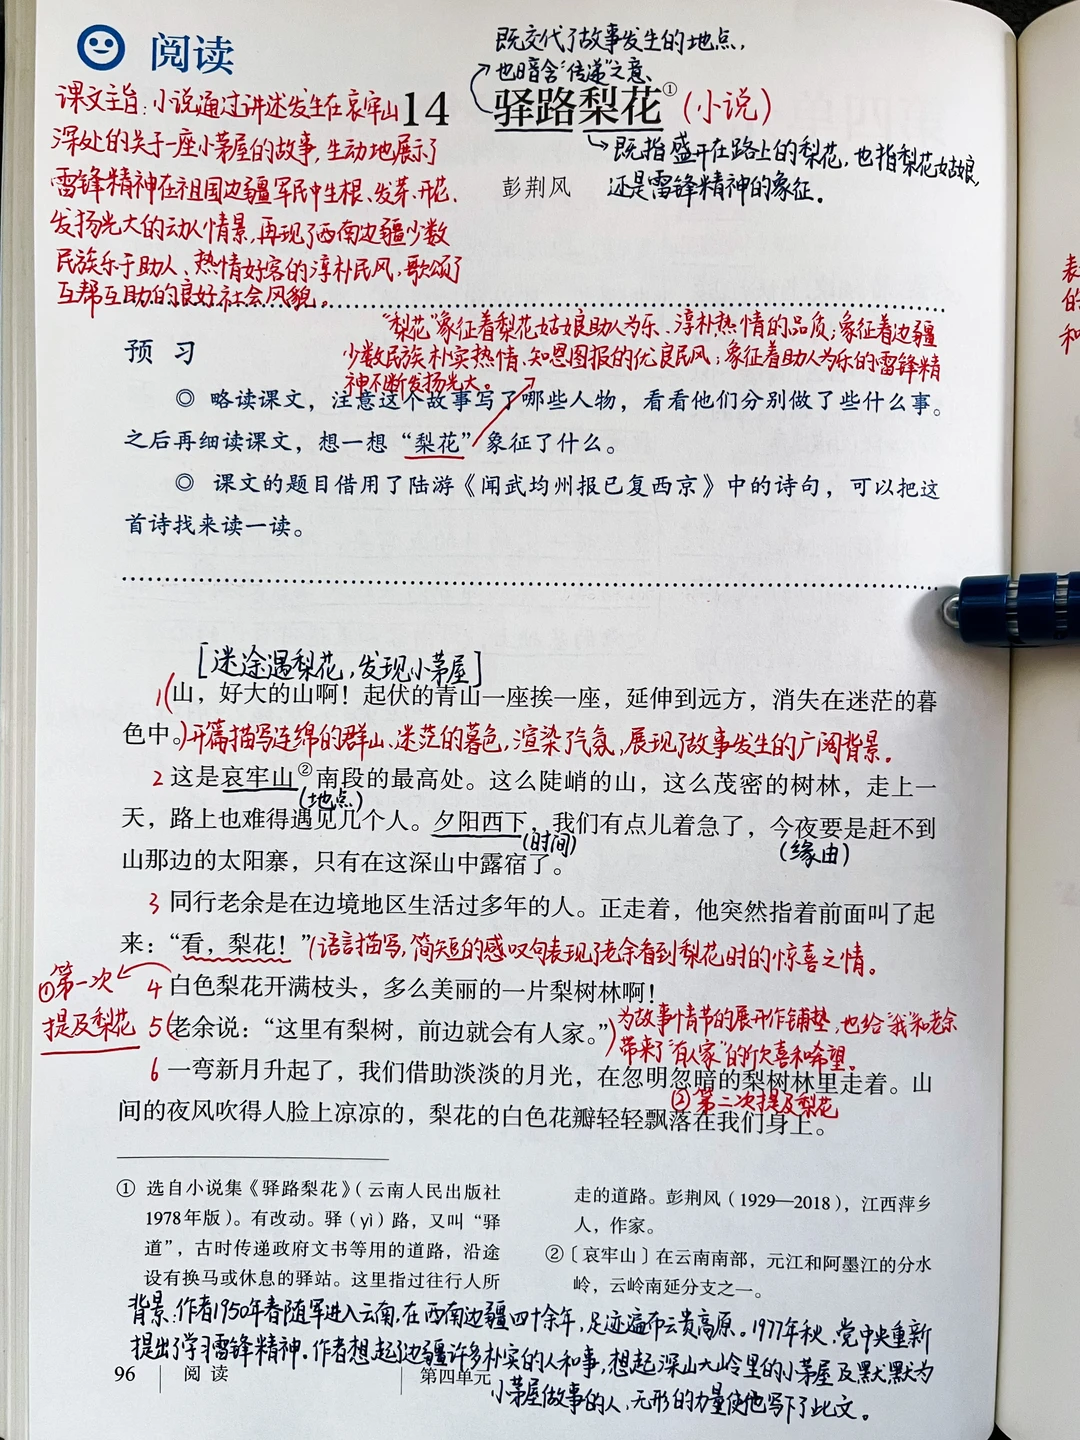 阅读
既交代了故事发生的地点,
也暗含“传递”之意、
14 驿路梨花①(小说)
既指盛开在路上的梨花,也指梨花姑娘,
还是雷锋精神的象征。
彭荆风
课文主旨:小说通过讲述发生在哀牢山
深处的关于一座小茅屋的故事,生动地展示了
雷锋精神在祖国边疆军民中生根、发芽、开花、
发扬光大的动人情景,再现了西南边疆少数
民族乐于助人、热情好客的淳朴民风,歌颂了
互帮互助的良好社会风貌。
“梨花”象征着梨花姑娘助人为乐、淳朴热情的品质;象征着边疆
少数民族朴实热情、知恩图报的优良民风;象征着助人为乐的雷锋精
神不断发扬光大。
预 习
◎ 略读课文,注意这个故事写了哪些人物,看看他们分别做了些什么事。
之后再细读课文,想一想“梨花”象征了什么。
◎ 课文的题目借用了陆游《闻武均州报已复西京》中的诗句,可以把这
首诗找来读一读。
[迷途遇梨花,发现小茅屋]
1(山,好大的山啊!起伏的青山一座挨一座,延伸到远方,消失在迷茫的暮
色中。)开篇描写连绵的群山、迷茫的暮色,渲染了气氛,展现了故事发生的广阔背景。
2 这是哀牢山②南段的最高处。这么陡峭的山,这么茂密的树林,走上一
(地点)
天,路上也难得遇见几个人。夕阳西下,我们有点儿着急了,今夜要是赶不到
(时间)
(缘由)
山那边的太阳寨,只有在这深山中露宿了。
3 同行老余是在边境地区生活过多年的人。正走着,他突然指着前面叫了起
来:“看,梨花!”(语言描写,简短的感叹句表现了老余看到梨花时的惊喜之情。
①第一次
提及梨花
4 白色梨花开满枝头,多么美丽的一片梨树林啊!
5(老余说:“这里有梨树,前边就会有人家。”)为故事情节的展开作铺垫,也给“我”和老余
带来了“有人家”的欣喜和希望。
6 一弯新月升起了,我们借助淡淡的月光,在忽明忽暗的梨树林里走着。山
②第二次提及梨花
间的夜风吹得人脸上凉凉的,梨花的白色花瓣轻轻飘落在我们身上。
① 选自小说集《驿路梨花》(云南人民出版社
1978年版)。有改动。驿(yì)路,又叫“驿
道”,古时传递政府文书等用的道路,沿途
设有换马或休息的驿站。这里指过往行人所
走的道路。彭荆风(1929—2018),江西萍乡
人,作家。
②〔哀牢山〕在云南南部,元江和阿墨江的分水
岭,云岭南延分支之一。
背景:作者1950年春随军进入云南,在西南边疆四十余年,足迹遍布云贵高原。1977年秋,党中央重新
提出了学习雷锋精神。作者想起边疆许多朴实的人和事,想起深山大岭里的小茅屋及默默为
小茅屋做事的人,无形的力量使他写下了此文。
96 阅 读 第四单元
表
的
和